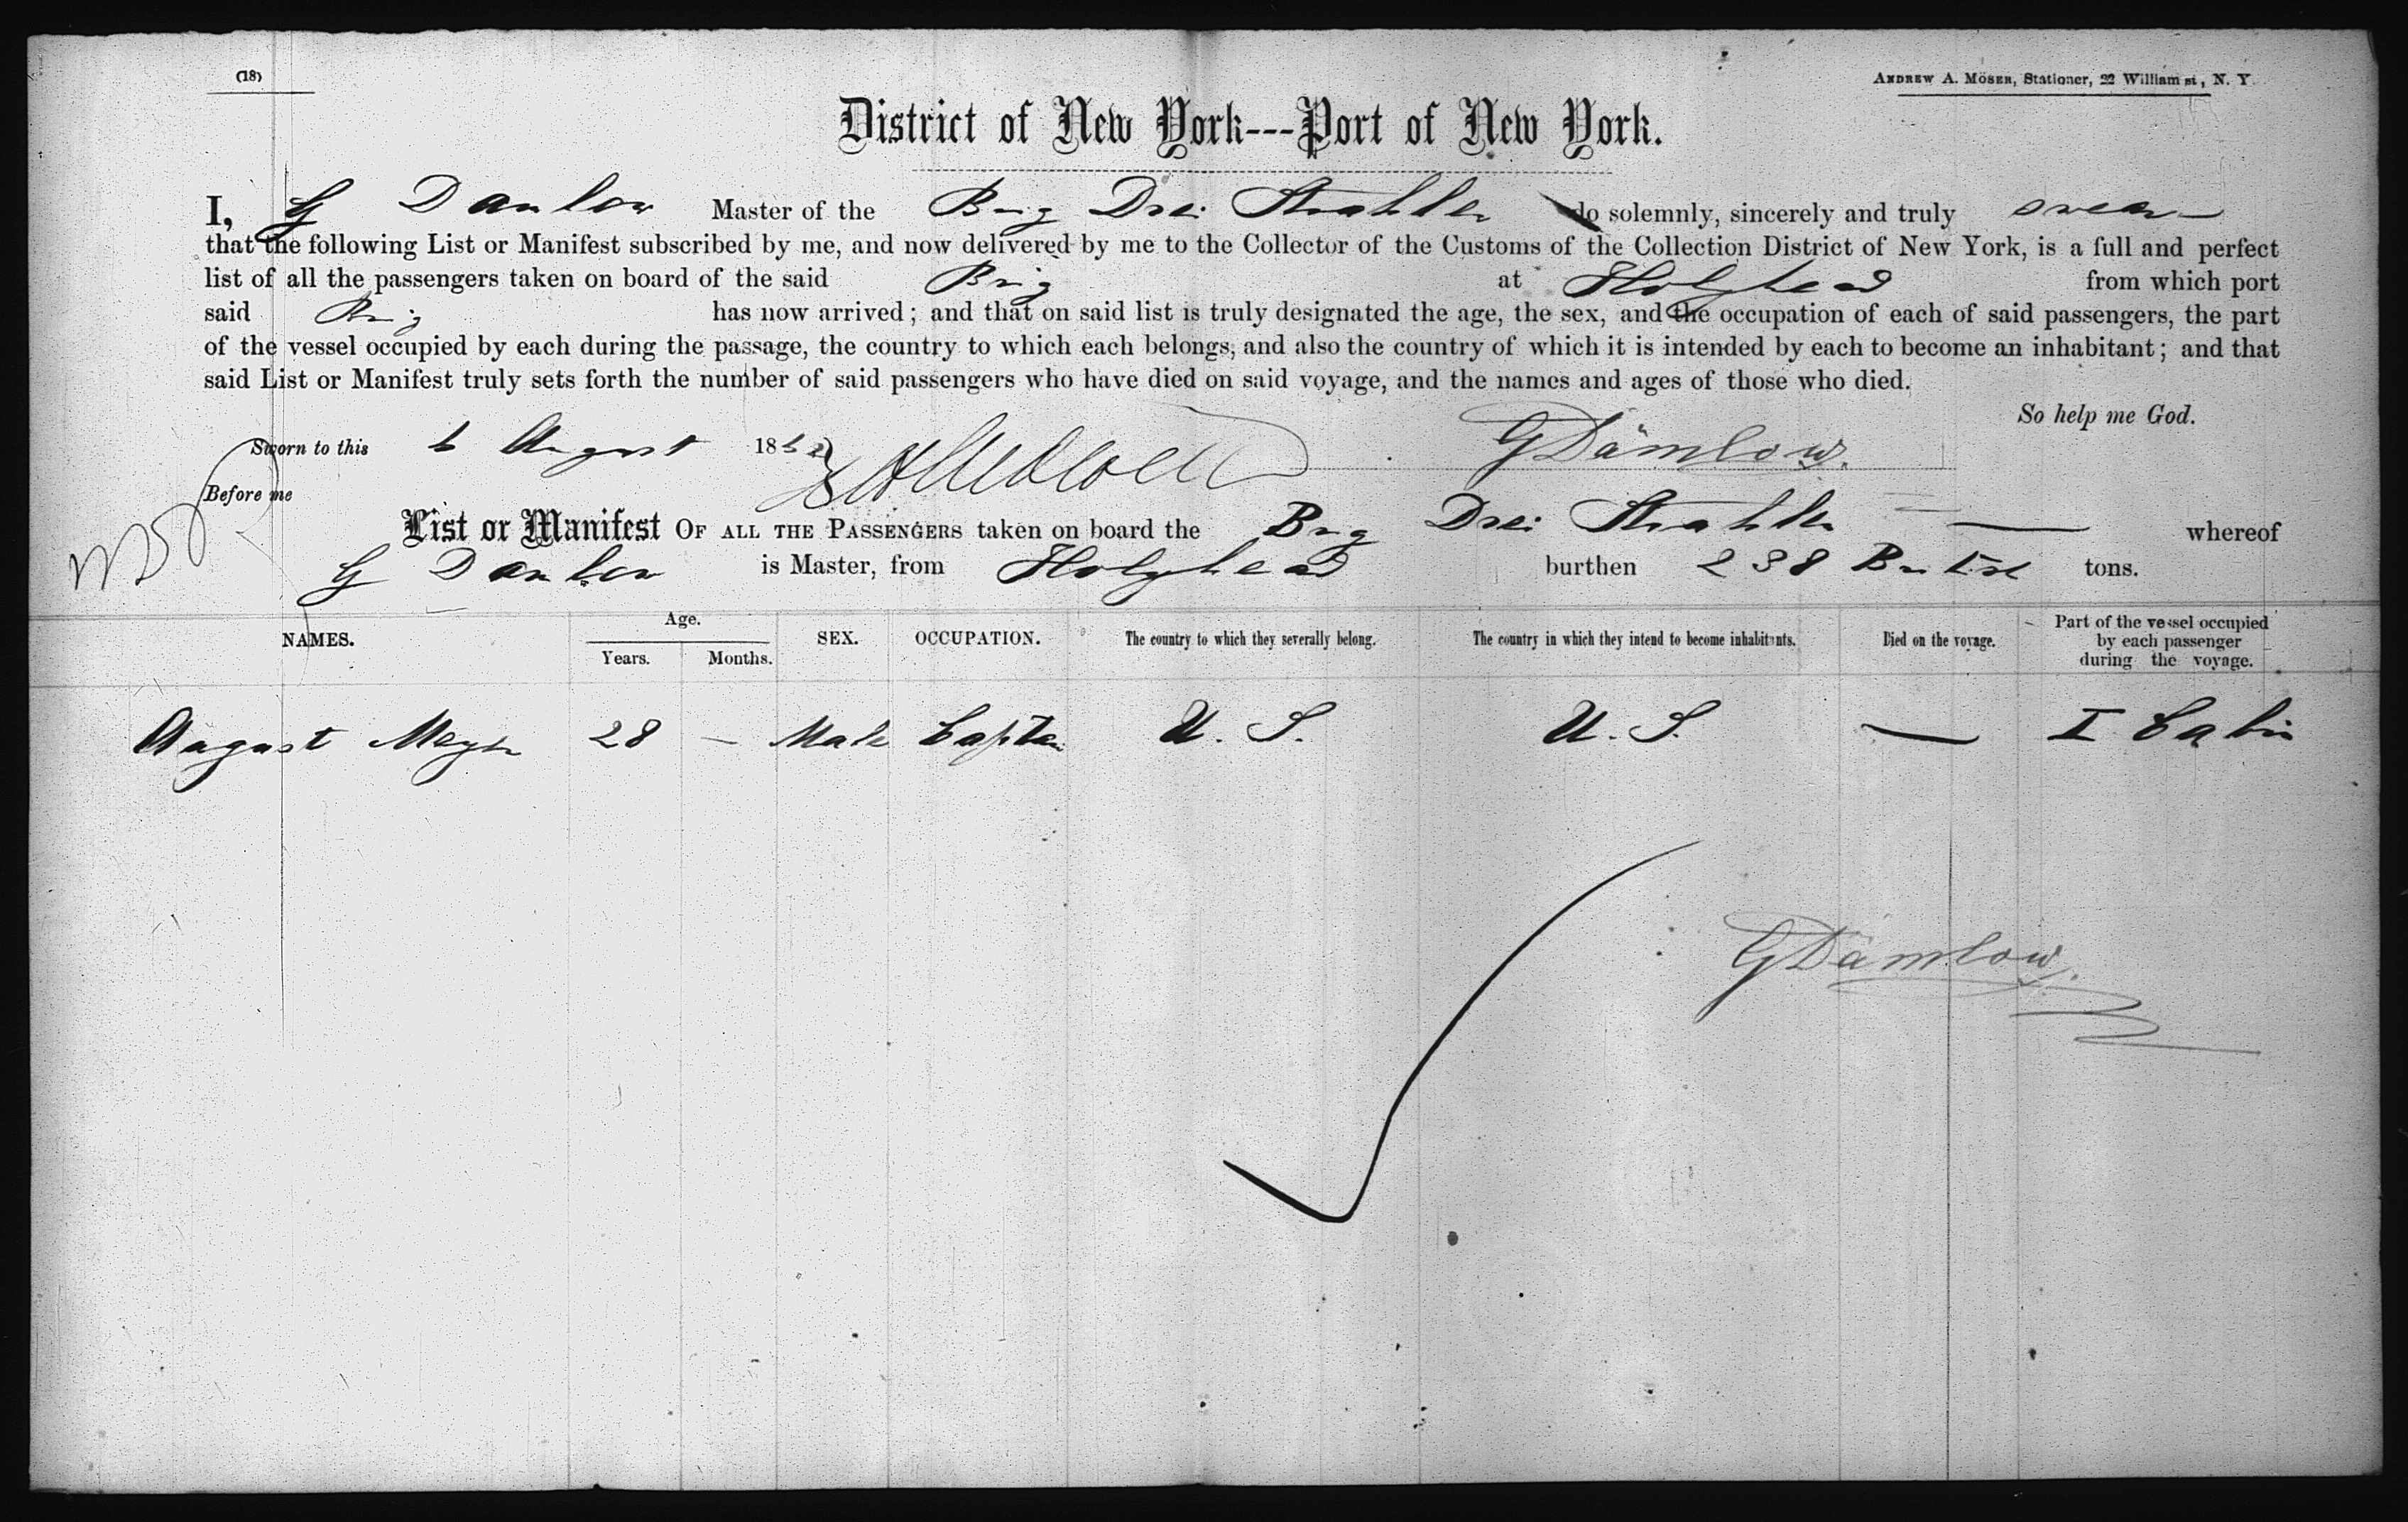 (18)
ANDREW A. MÖSER, Stationer, 22 William st, N. Y.
District of New York---Port of New York.
I, G Danlow Master of the Brig Drei Strahlen do solemnly, sincerely and truly swear
that the following List or Manifest subscribed by me, and now delivered by me to the Collector of the Customs of the Collection District of New York, is a full and perfect
list of all the passengers taken on board of the said Brig at Holyhead from which port
said Brig has now arrived; and that on said list is truly designated the age, the sex, and the occupation of each of said passengers, the part
of the vessel occupied by each during the passage, the country to which each belongs, and also the country of which it is intended by each to become an inhabitant; and that
said List or Manifest truly sets forth the number of said passengers who have died on said voyage, and the names and ages of those who died.
So help me God.
Sworn to this 6 August 186 GDämlow.
Before me
List or Manifest OF ALL THE PASSENGERS taken on board the Brig Drei Strahlen whereof
G Danlow is Master, from Holyhead burthen 238 tons.
NAMES. Age. Years. Months. SEX. OCCUPATION. The country to which they severally belong. The country in which they intend to become inhabitants. Died on the voyage. Part of the vessel occupied by each passenger during the voyage.
August Meyer 28 — Male Captain U. S. U. S. — I Cabin
GDämlow.